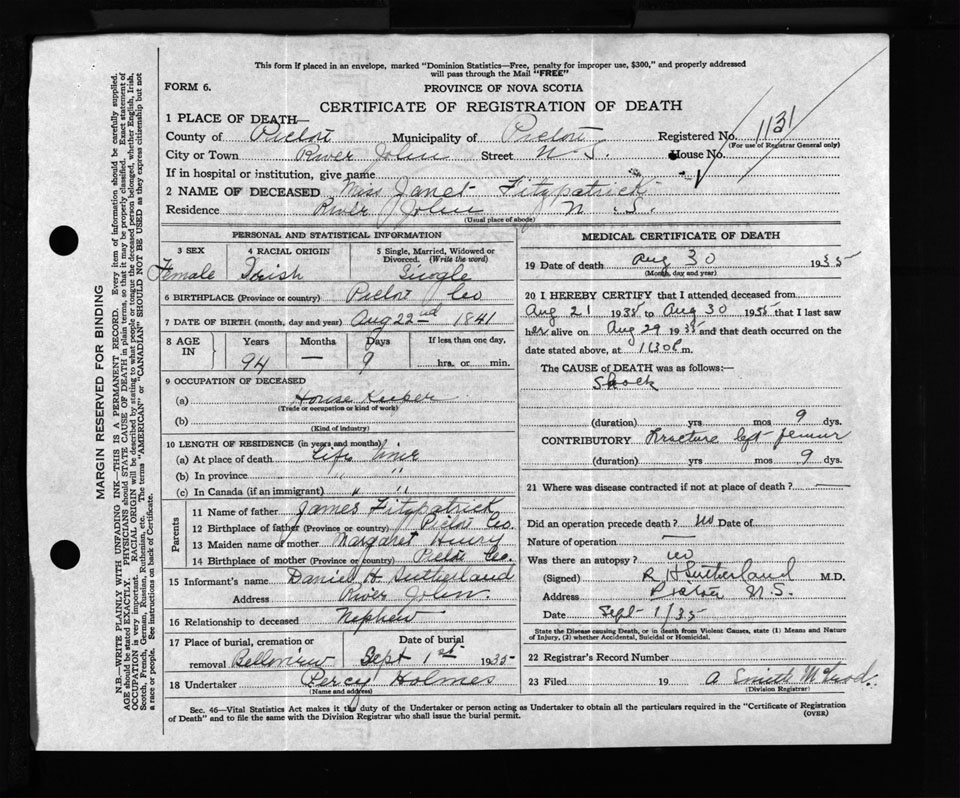 This form if placed in an envelope, marked "Dominion Statistics—Free, penalty for improper use, $300," and properly addressed
will pass through the Mail "FREE"
FORM 6.
PROVINCE OF NOVA SCOTIA
CERTIFICATE OF REGISTRATION OF DEATH
1 PLACE OF DEATH—
County of Pictou Municipality of Pictou Registered No. 1131
(For use of Registrar General only)
City or Town River John Street N.S. House No.
If in hospital or institution, give name
2 NAME OF DECEASED Miss Janet Fitzpatrick
Residence River John N.S.
(Usual place of abode)
PERSONAL AND STATISTICAL INFORMATION
3 SEX 4 RACIAL ORIGIN 5 Single, Married, Widowed or
Divorced. (Write the word)
Female Irish Single
6 BIRTHPLACE (Province or country) Pictou Co
7 DATE OF BIRTH (month, day and year) Aug 22nd 1841
8 AGE IN Years Months Days If less than one day,
94 — 9 hrs. or min.
9 OCCUPATION OF DECEASED
(a) House Keeper
(Trade or occupation or kind of work)
(b)
(Kind of industry)
10 LENGTH OF RESIDENCE (in years and months)
(a) At place of death Life time
(b) In province " "
(c) In Canada (if an immigrant) " "
Parents
11 Name of father James Fitzpatrick
12 Birthplace of father (Province or country) Pictou Co.
13 Maiden name of mother Margaret
14 Birthplace of mother (Province or country) Pictou Co.
15 Informant's name Daniel H Sutherland
Address River John.
16 Relationship to deceased Nephew
17 Place of burial, cremation or Date of burial
removal Bellview Sept 1st 1935
18 Undertaker Percy Holmes
(Name and address)
MEDICAL CERTIFICATE OF DEATH
19 Date of death Aug 30 1935
(Month, day and year)
20 I HEREBY CERTIFY that I attended deceased from
Aug 21 1935 to Aug 30 1935 that I last saw
her alive on Aug 29 1935 and that death occurred on
date stated above, at 1130 P m.
The CAUSE OF DEATH was as follows:—
Shock
(duration) yrs mos 9 dys.
CONTRIBUTORY Fracture left femur
(duration) yrs mos 9 dys.
21 Where was disease contracted if not at place of death? —
Did an operation precede death? no Date of
Nature of operation —
Was there an autopsy? no
(Signed) R H Sutherland M.D.
Address Pictou N.S.
Date Sept 1/35
State the Disease causing Death, or in death from Violent Causes, state (1) Means and Nature
of Injury, (2) whether Accidental, Suicidal or Homicidal.
22 Registrar's Record Number
23 Filed 19 A Smith
(Division Registrar)
Sec. 46—Vital Statistics Act makes it the duty of the Undertaker or person acting as Undertaker to obtain all the particulars required in the "Certificate of Registration
of Death" and to file the same with the Division Registrar who shall issue the burial permit.
(OVER)
MARGIN RESERVED FOR BINDING
N.B.—WRITE PLAINLY WITH UNFADING INK—THIS IS A PERMANENT RECORD. Every item of information should be carefully supplied.
AGE should be stated EXACTLY. PHYSICIANS should STATE CAUSE OF DEATH in plain terms, so that it may be properly classified. Exact statement of
OCCUPATION is very important. RACIAL ORIGIN will be described by stating to what people or tongue the deceased person belonged, whether English, Irish,
Scotch, French, German, Russian, Ruthenian, etc. The terms "AMERICAN" or "CANADIAN" SHOULD NOT BE USED as they express citizenship but not
a race or people. See instructions on back of Certificate.